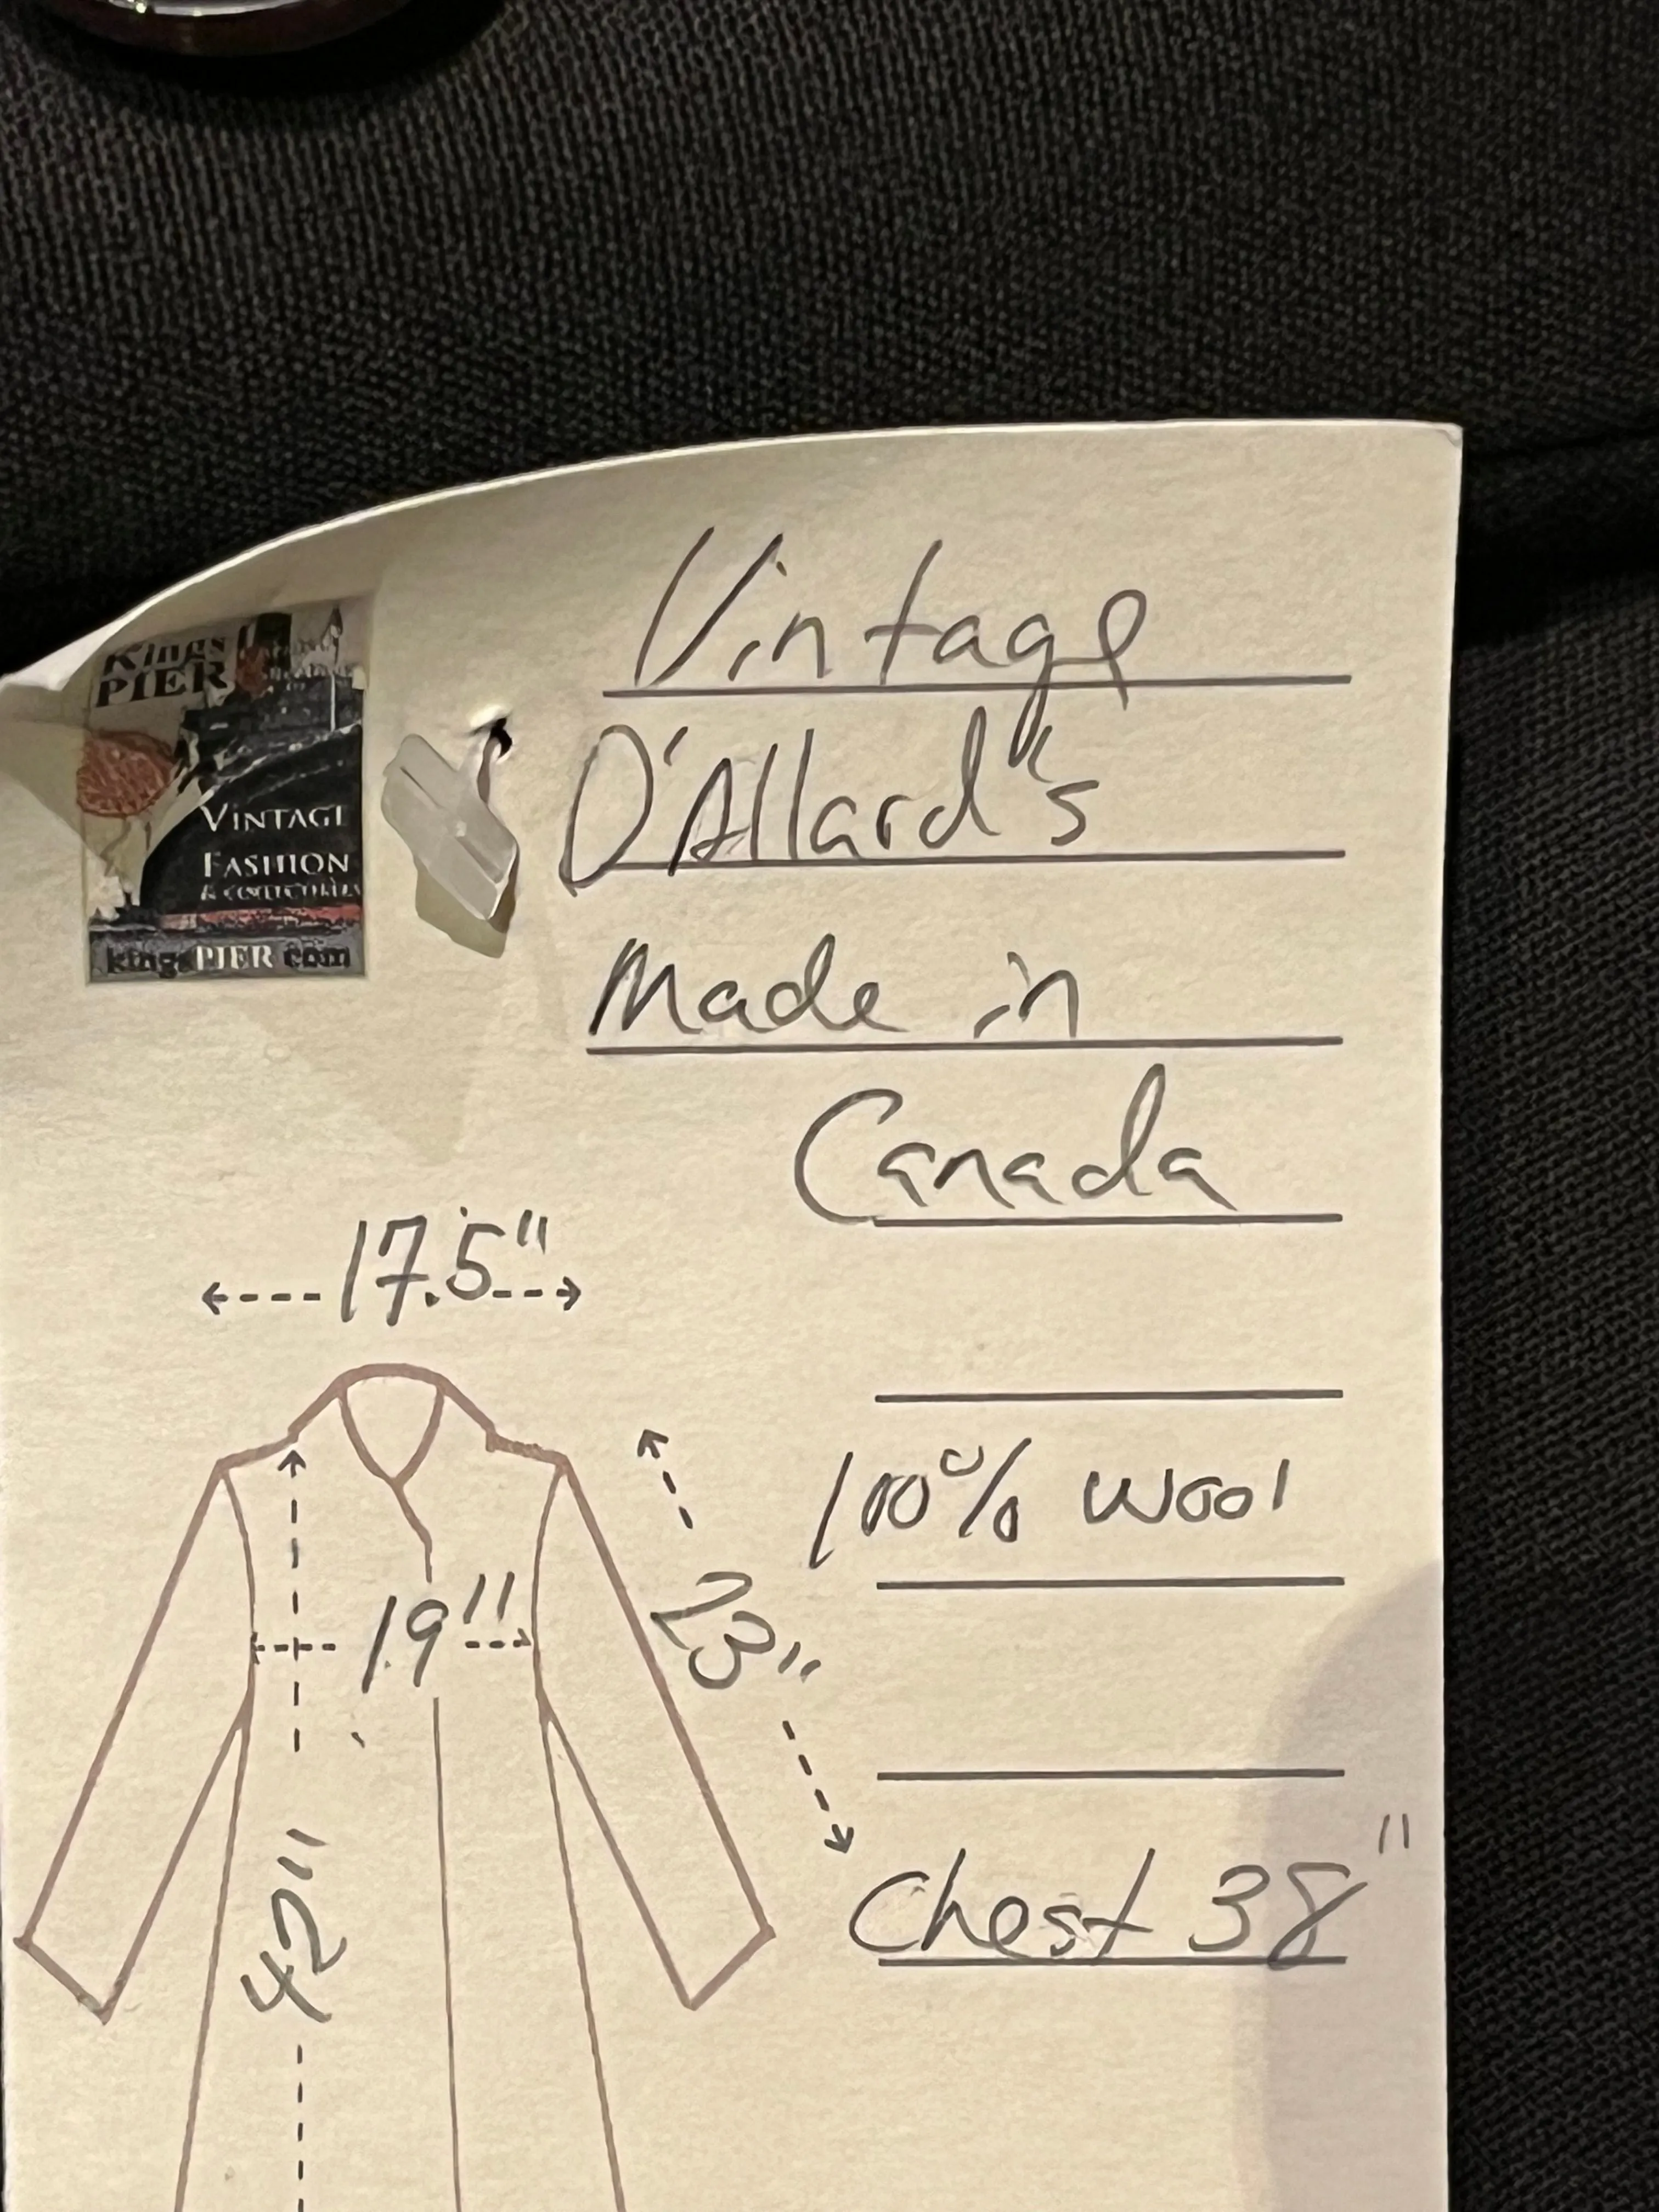 Kings
PIER
VINTAGE
FASHION
& COLLECTIBLES
kingsPIER.com
Vintage
D'Allard's
Made in
Canada
17.5"
100% wool
19"
23"
42"
Chest 38"